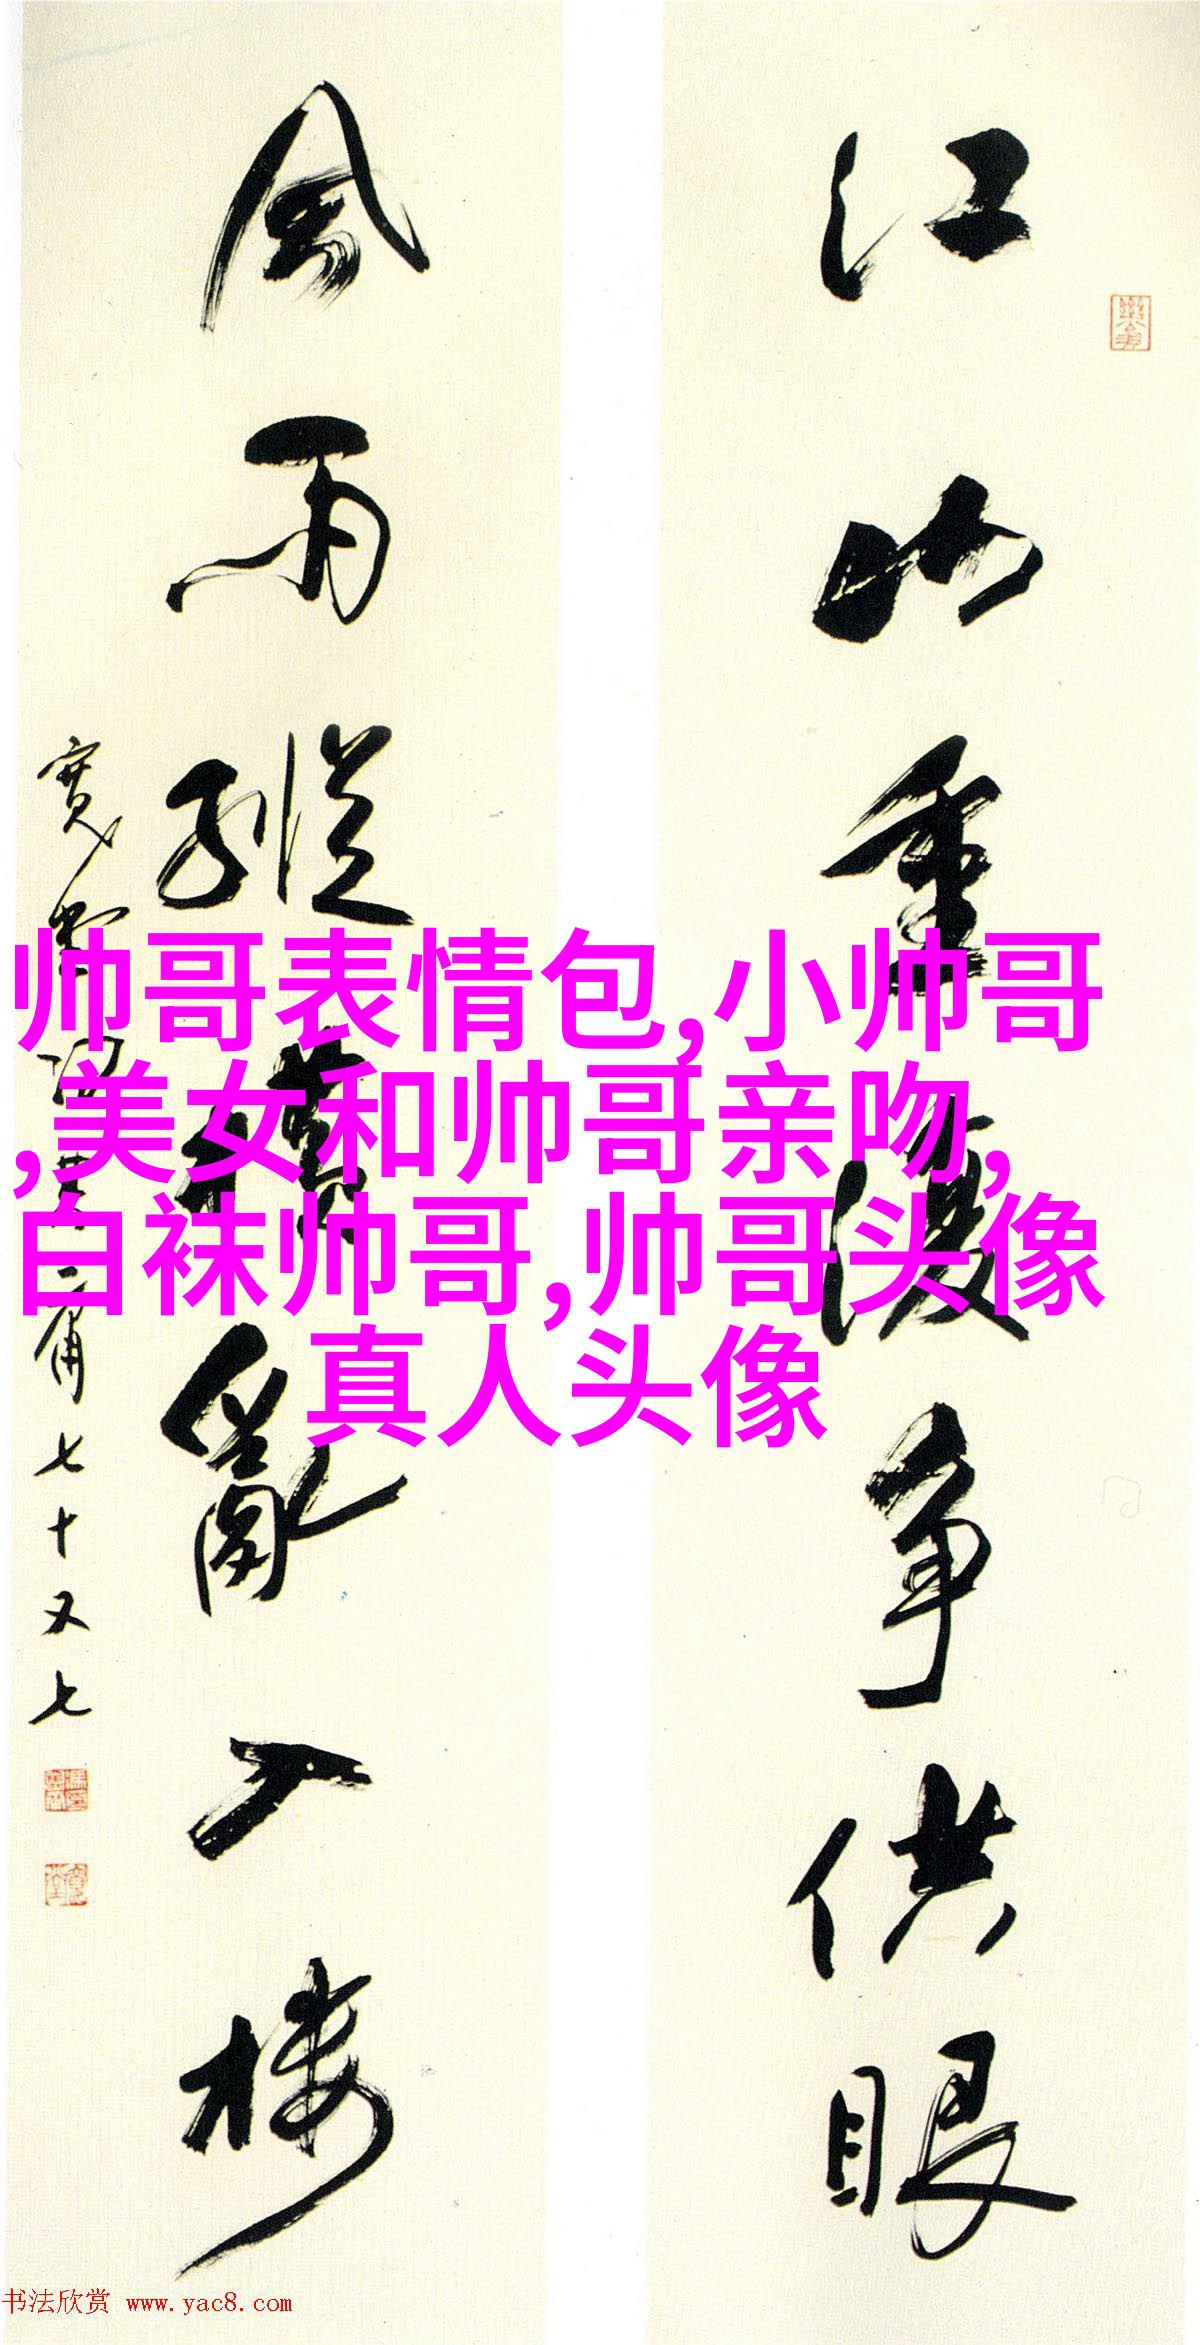 江山重復争供眼
風雨縱横亂入楼
七十又七
帅哥表情包,小帅哥
,美女和帅哥亲吻,
白袜帅哥,帅哥头像
真人头像
书法欣赏 www.yac8.com